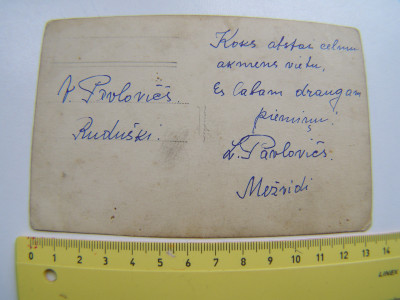 V. Pavlovičš.
Ruduški.
Koks atstāi celmu
akmens vietu.
Es labam draugam
piemiņu!
L. Pavlovičs.
Mežvidi
0 1 2 3 4 5 6 7 8 9 10 11 12 13 14